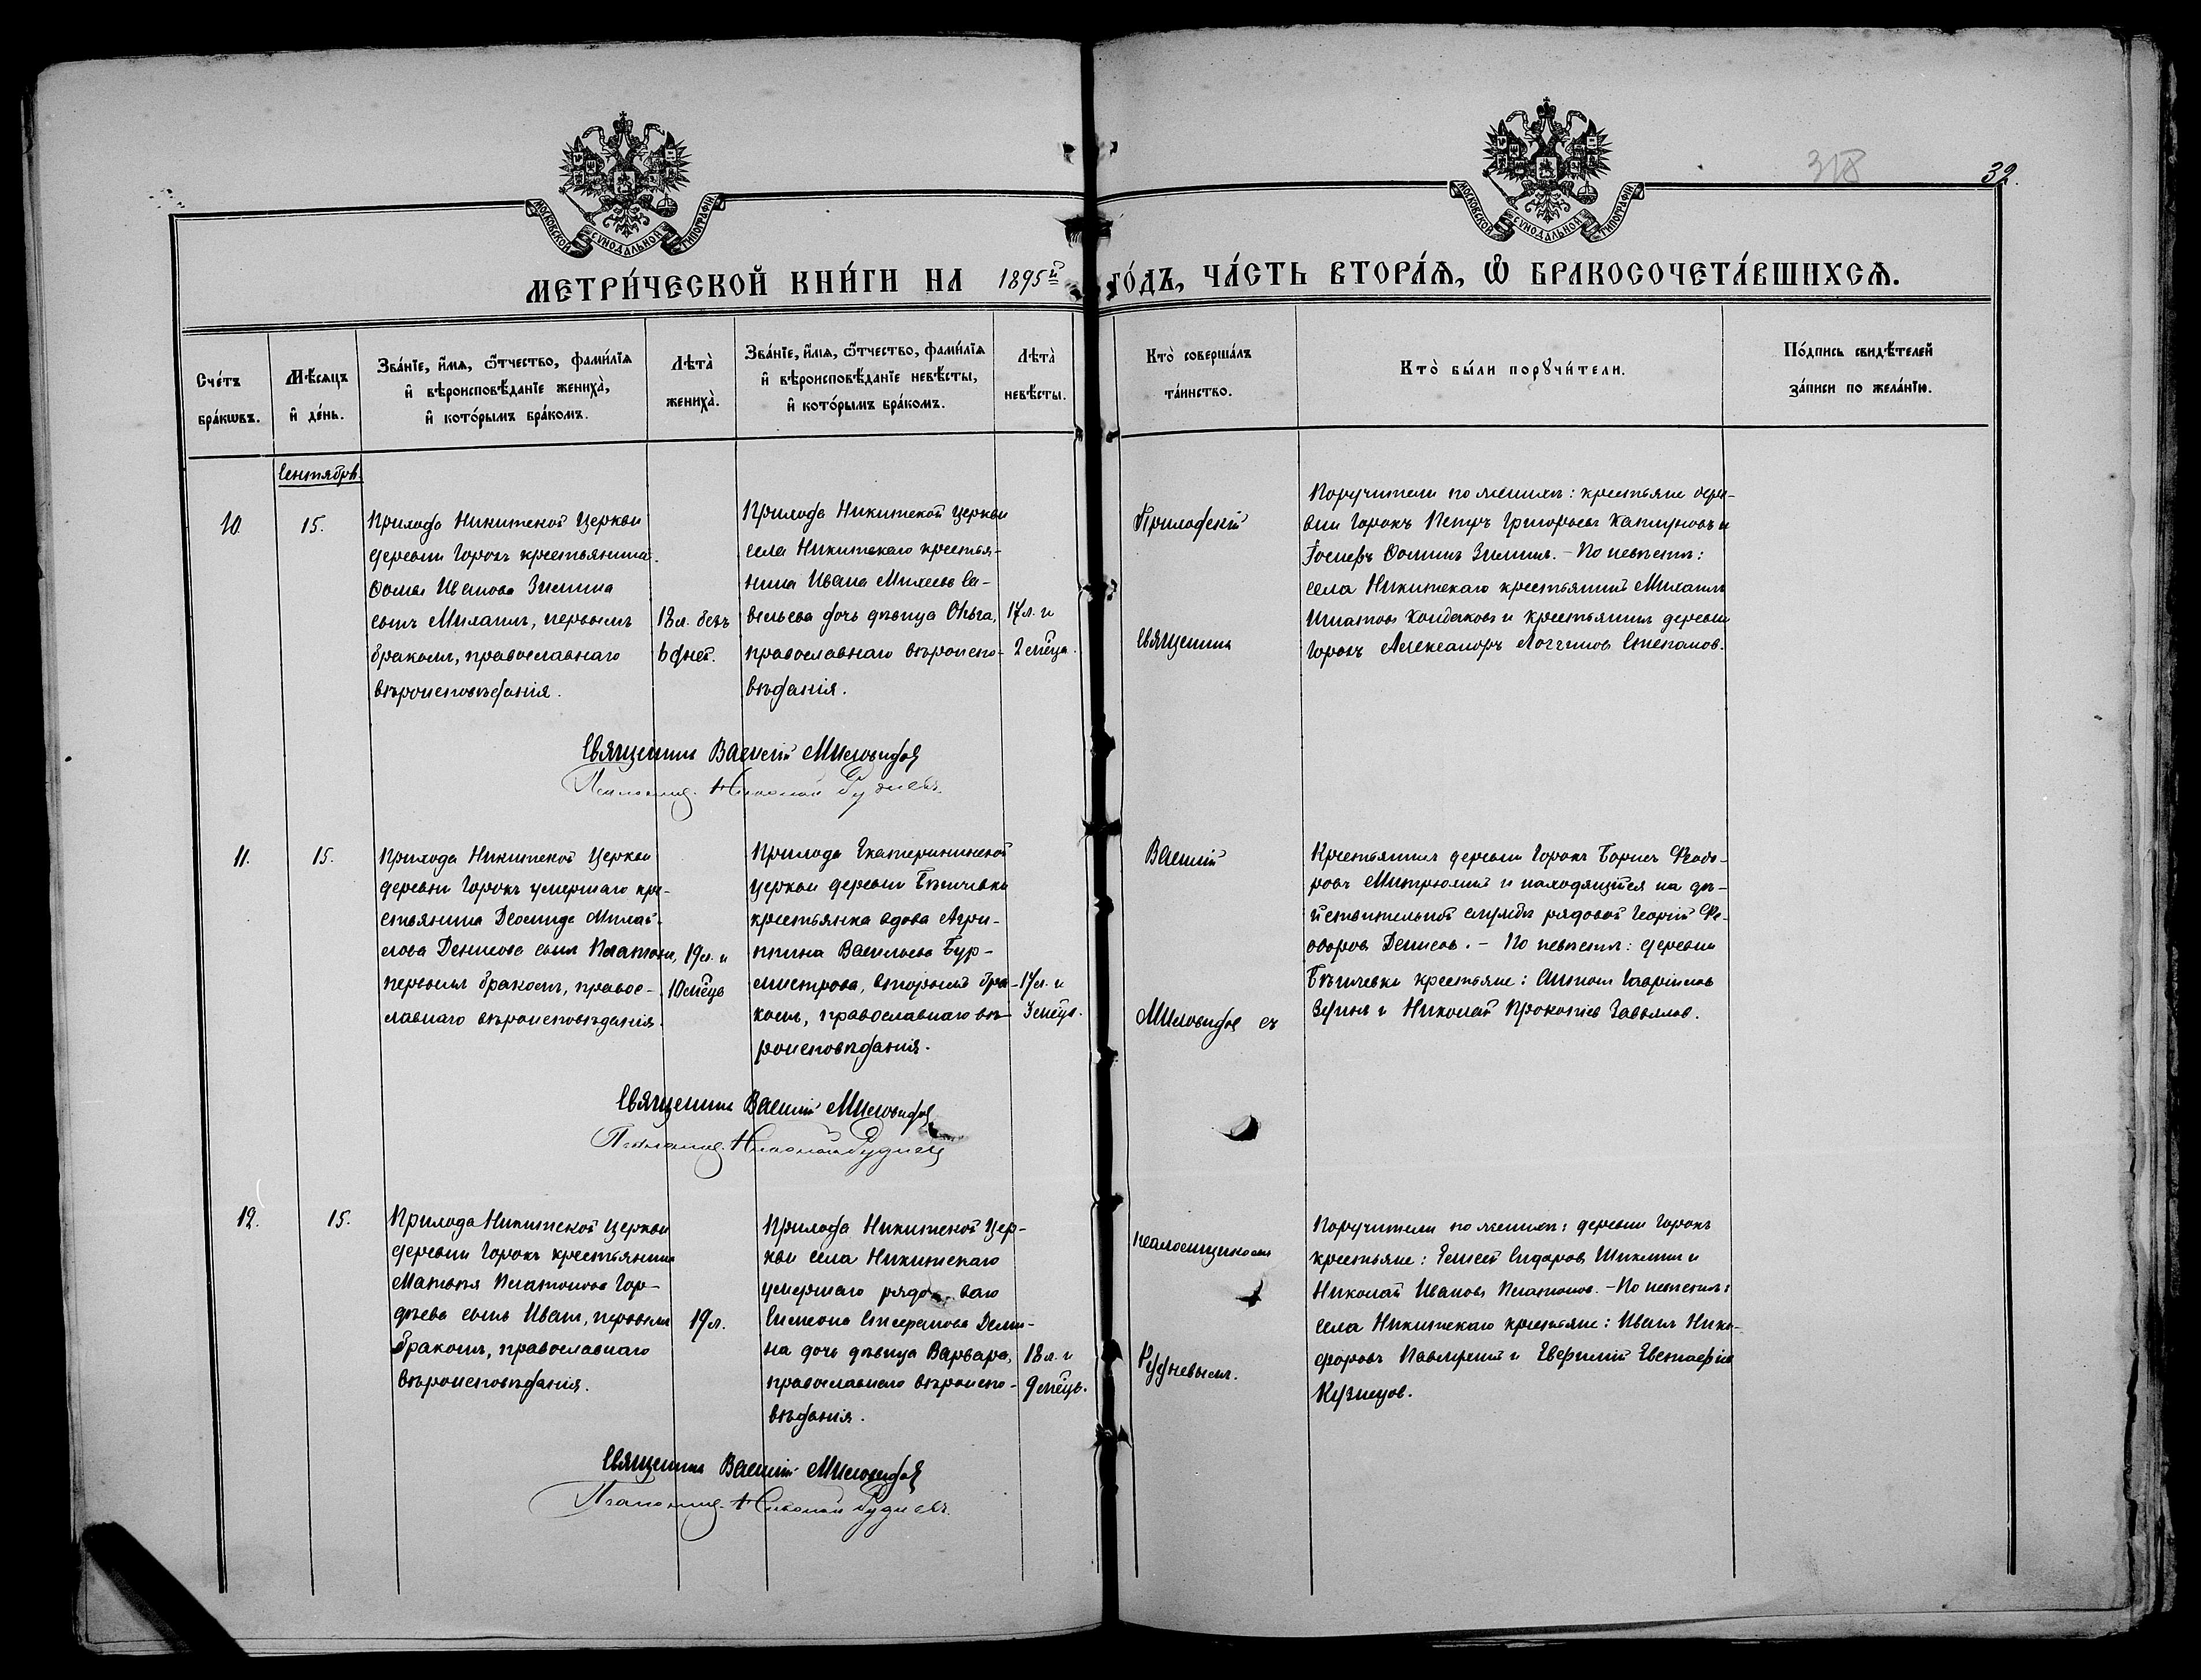 318
32.
МОСКОВСКОЙ СѴНОДАЛЬНОЙ ТИПОГРАФІИ
МОСКОВСКОЙ СѴНОДАЛЬНОЙ ТИПОГРАФІИ
МЕТРИ́ЧЕСКОЙ КНИ́ГИ НА 1895й ГО́ДЪ, ЧА́СТЬ ВТОРА́Ѧ, Ѡ҆ БРАКОСОЧЕТА́ВШИХСѦ.
Сче́тъ
бра́кѡвъ.
Мѣ́сяцъ
и҆ де́нь.
Зва́нїе, и҆́мѧ, ѻ҆́тчество, фами́лїѧ
и҆ вѣроисповѣ́данїе жениха̀,
и҆ кото́рымъ бра́комъ.
Лѣта̀
жениха̀.
Зва́нїе, и҆́мѧ, ѻ҆́тчество, фами́лїѧ
и҆ вѣроисповѣ́данїе невѣ́сты,
и҆ кото́рымъ бра́комъ.
Лѣта̀
невѣ́сты.
Кто̀ соверша́лъ
та́инство.
Кто̀ бы́ли порꙋчи́тели.
По́дпись свидѣ́телей
за́писи по жела́нїю.
Сентябрь.
10.
15.
Прихода Никитской Церкви
деревни Горокъ крестьянина
Ѳомы Иванова Зимина
сынъ Михаилъ, первымъ
бракомъ, православнаго
вѣроисповѣданія.
18 л. безъ
6 дней.
Прихода Никитской церкви
села Никитскаго крестья-
нина Ивана Михеева Са-
вельева дочь дѣвица Ольга,
православнаго вѣроиспо-
вѣданія.
17 л. и
2 мѣсца.
Приходскій
Священникъ
Поручители по женихѣ: крестьяне дере-
вни Горокъ Петръ Григорьевъ и
Іосифъ Ѳоминъ Зиминъ. – По невѣстѣ:
села Никитскаго крестьянинъ Михаилъ
Кондаковъ и крестьянинъ деревни
Горокъ Александръ Логгиновъ Степановъ.
Священникъ Василій Миловидовъ
Псаломщ. Николай Рудневъ.
11.
15.
Прихода Никитской Церкви
деревни Горокъ умершаго кре-
стьянина Михаи-
лова Денисова сынъ Платонъ,
первымъ бракомъ, правос-
лавнаго вѣроисповѣданія.
19 л. и
10 мѣсцъ
Прихода Екатерининской
церкви деревни Бѣгичевки
крестьянка вдова Агри-
ппина Васильева Бур-
мистрова, вторымъ бра-
комъ, православнаго вѣ-
роисповѣданія.
17 л. и
3 мѣсц.
Василій
Миловидовъ съ
Крестьянинъ деревни Горокъ Борисъ Ѳеодо-
ровъ Митрюшинъ и находящійся на дѣ-
йствительной службѣ рядовой Георгій Ѳе-
одоровъ Денисовъ. – По невѣстѣ: деревни
Бѣгичевки крестьяне: Антонъ Гавриловъ
и Николай Прокопіевъ Завьяловъ.
Священникъ Василій Миловидовъ
Псаломщ. Николай Рудневъ
12.
15.
Прихода Никитской Церкви
деревни Горокъ крестьянина
Матвѣя Платонова Гор-
дѣева сынъ Иванъ, первымъ
бракомъ, православнаго
вѣроисповѣданія.
19 л.
Прихода Никитской Цер-
кви села Никитскаго
умершаго рядоваго
Симеона Стефанова Деми-
на дочь дѣвица Варвара,
православнаго вѣроиспо-
вѣданія.
18 л. и
9 мѣсцъ.
псаломщикомъ
Рудневымъ.
Поручители по женихѣ: деревни Горокъ
крестьяне: Сидоровъ и
Николай Ивановъ Платоновъ. – По невѣстѣ:
села Никитскаго крестьяне: Иванъ Ники-
форовъ и Евфимій Евстафіевъ
Кузнецовъ.
Священникъ Василій Миловидовъ
Псаломщ. Николай Рудневъ.